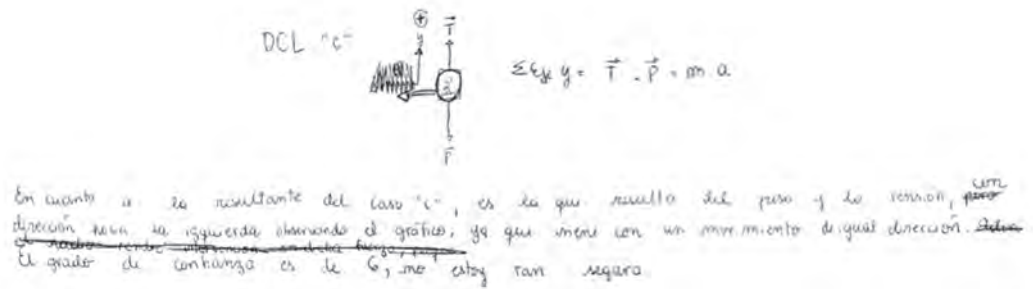 DCL "c"
⊕ T⃗
y
P⃗
Σ Eje y = T⃗ - P⃗ = m.a
En cuanto a la resultante del caso "c", es la que resulta del peso y la tensión, con
dirección hacia la izquierda observando el gráfico, ya que viene con un movimiento de igual dirección.
El grado de confianza es de 6, no estoy tan segura